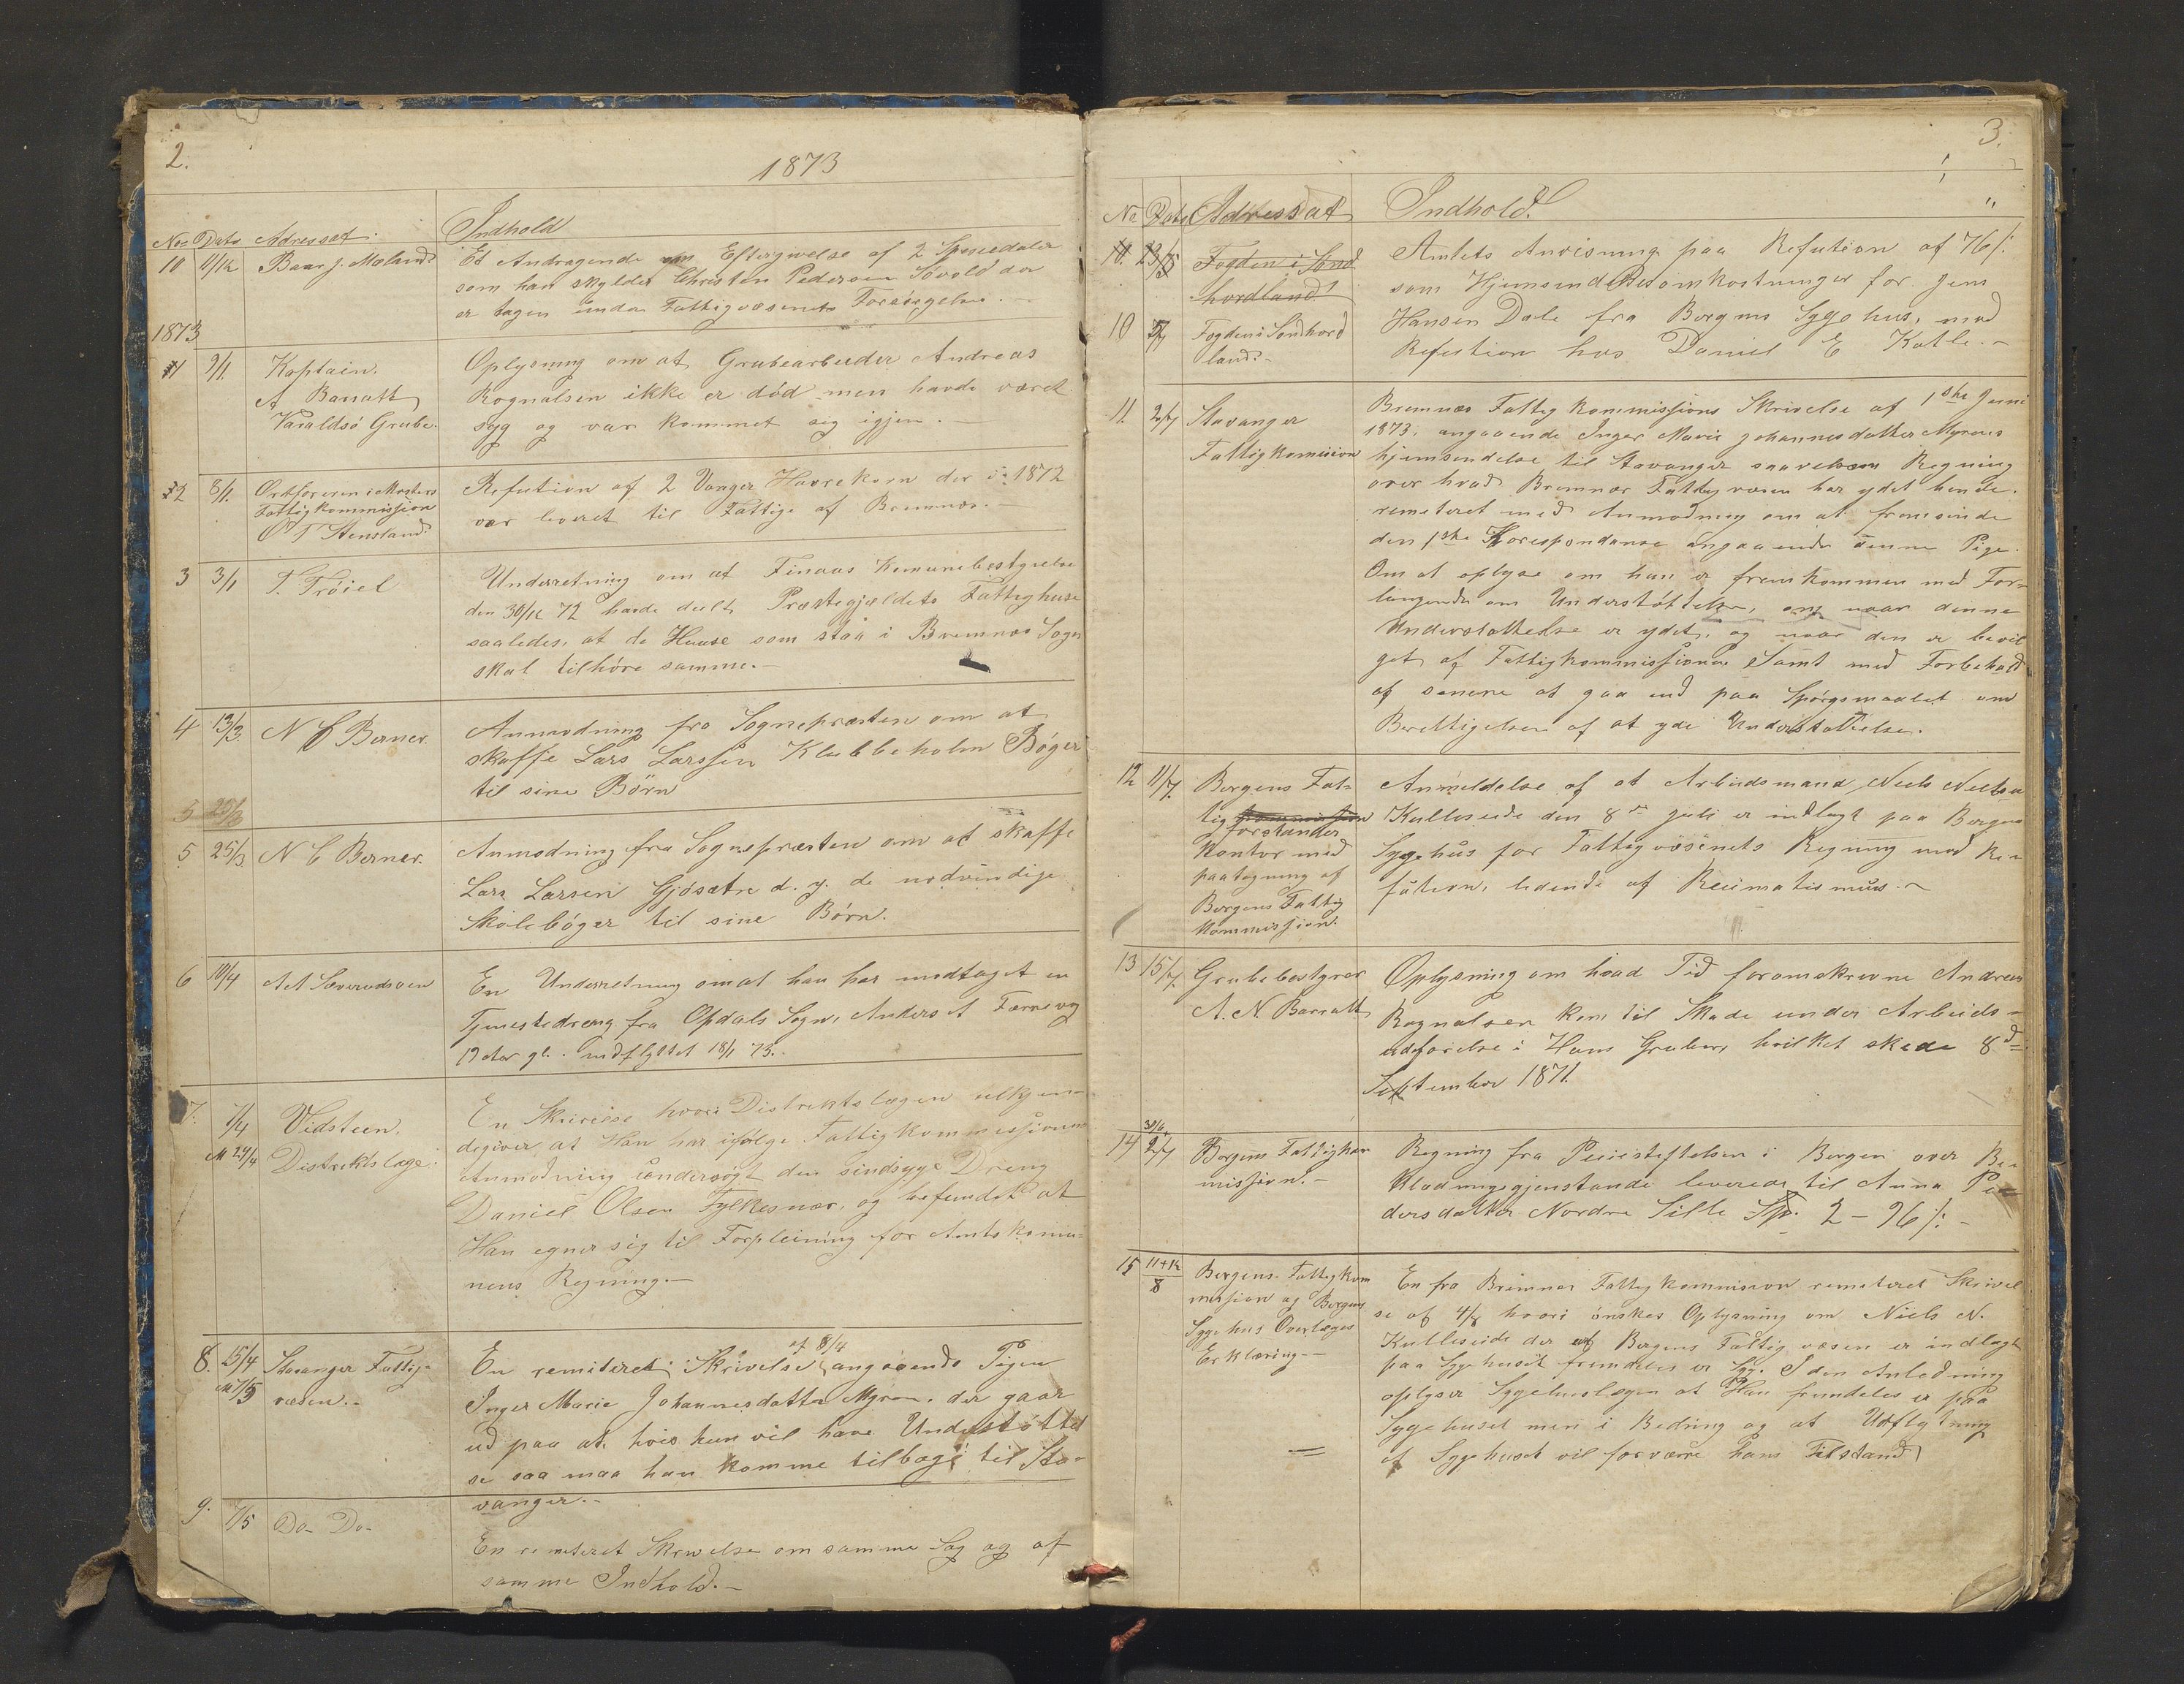 2.
1873
No Dato Adressat.
Indhold
10 11/12 Baar J. Mæland
Et Andragende om Eftergivelse af 2 Speciedaler
som han skylder Christen Pedersen Sævold der
er tagen under Fattigvæsenets Forsørgelse.
1873
1 2/1 Kaptain.
A Barratt
Varaldsö Grube.
Oplysning om at Grubearbeider Andreas
Rognalsen ikke er död men havde været
syg og var kommet sig igjen.
2 3/1 Ordföreren i Mosters
Fattigkommission
O T Stensland
Refution af 2 Vonger Havrekorn der i 1872
var leveret til Fattige af Bremnæs.
3 3/1 T. Tröiel
Underretning om at Finaas Komunebestyrelse
den 30/12 72 havde deelt Præstegjeldets Fattighuse
saaledes, at de Huuse som staa i Bremnæs Sogn
skal tilhöre samme.
4 13/3. N C Berner.
Anmodning fra Sognepræsten om at
skaffe Lars Larssen Klubbeholm Böger
til sine Börn
5 25/3
5 25/3 N C Berner.
Anmodning fra Sognepræsten om at skaffe
Lars Larsen Gjösætre d. y. de nødvindige
Skoleböger til sine Börn.
6 10/4 A A Sæverudsøen
En Underretning om at han har modtaget en
Tjenestedreng fra Opdals Sogn, Anders A Tærnevog
19 Aar gl. indflyttet 18/1 73.
7. 7/4 Vidsteen.
M 29/4 Distriktslæge.
En Skrivelse hvori Distriktslægen tilkjen-
degiver at Han har ifölge Fattigkommissionens
Anmodning undersögt den sindsyge Dreng
Daniel Olsen Fylkesnæs, og befundet at
Han egner sig til Forpleining for Amtskomu-
nens Regning.
8. 25/4 Stavanger Fattig-
M 7/5 væsen.
af 8/4
En remiteret Skrivelse angaaende Pigen
Inger Marie Johannesdatter Myren. der gaar
ud paa at hvis hun vil have Understöttel
se saa maa hun komme tilbage til Sta-
vanger.
9. 7/5 Do Do
En remiteret Skrivelse om samme Sag og af
samme Indhold.
3.
No Dato Adressat
Indhold.
10. 23/5 Fogden i Sönd
hordland
10 2/7 Fogden i Söndhord
land.
Amtets Anvisning paa Refution af 76 ß
som Hjemsendelsesomkostninger for Jens
Hansen Dale fra Bergens Sygehus, mod
Refution hos Daniel E Katle.
11. 2/7 Stavanger
Fattigkomision
Bremnæs Fattigkommissions Skrivelse af 1ste Juni
1873. angaaende Inger Marie Johannesdatter Myrens
hjemsendelse til Stavanger saavelsom Regning
over hvad Bremnæs Fattigvæsen har ydet hende.
remiteret med Anmodning om at fremsende
den 1ste Korespondanse angaaende denne Pige.
Om at oplyse om hun er fremkommen med For-
langende om Understöttelse, og naar denne
Understøttelse er ydet, og naar den er bevil
get af Fattigkommissionen Samt med Forbehold
af senere at gaa ind paa Spörgsmaalet om
Berettigelsen af at yde Understöttelse.
12 11/7. Bergens Fat-
tig kommission
forstander
Kontor med
paategning af
Bergens Fattig
Kommission.
Anmeldelse af at Arbeidsmand Niels Nielsen
Kulleseide den 8de Juli er indlagt paa Bergens
Sygehus for Fattigvæsenets Regning mod Re-
fution, lidende af Reumatismus.
13 15/7. Grubebestyrer
A. N. Barratt
Oplysning om hvad Tid foromskrevne Andreas
Rognalsen kom til Skade under Arbeids-
udförelse i Hans Gruber, hvilket skede 8d
September 1871.
30/6
14 2/7 Bergens Fattigkom
mission.
Regning fra Pleiestiftelsen i Bergen over Be-
klædningsgjenstande leverede til Anna Pe
dersdatter Nordre Lille Sp. 2 - 26 ß
15 11+12/8 Bergens Fattigkom
mission og Bergens
Sygehus Overlæges
Erklæring.
En fra Bremnæs Fattigkommission remiteret Skrivel
se af 4/8 hvori önskes Oplysning om Niels N.
Kulleseide der af Bergens Fattigvæsen er indlagt
paa Sygehuset fremdeles er Syg. I den Anledning
oplyser Sygehuslægen at Han fremdeles er paa
Sygehuset men i Bedring og at Udflytning
af Sygehuset vil forværre hans Tilstand